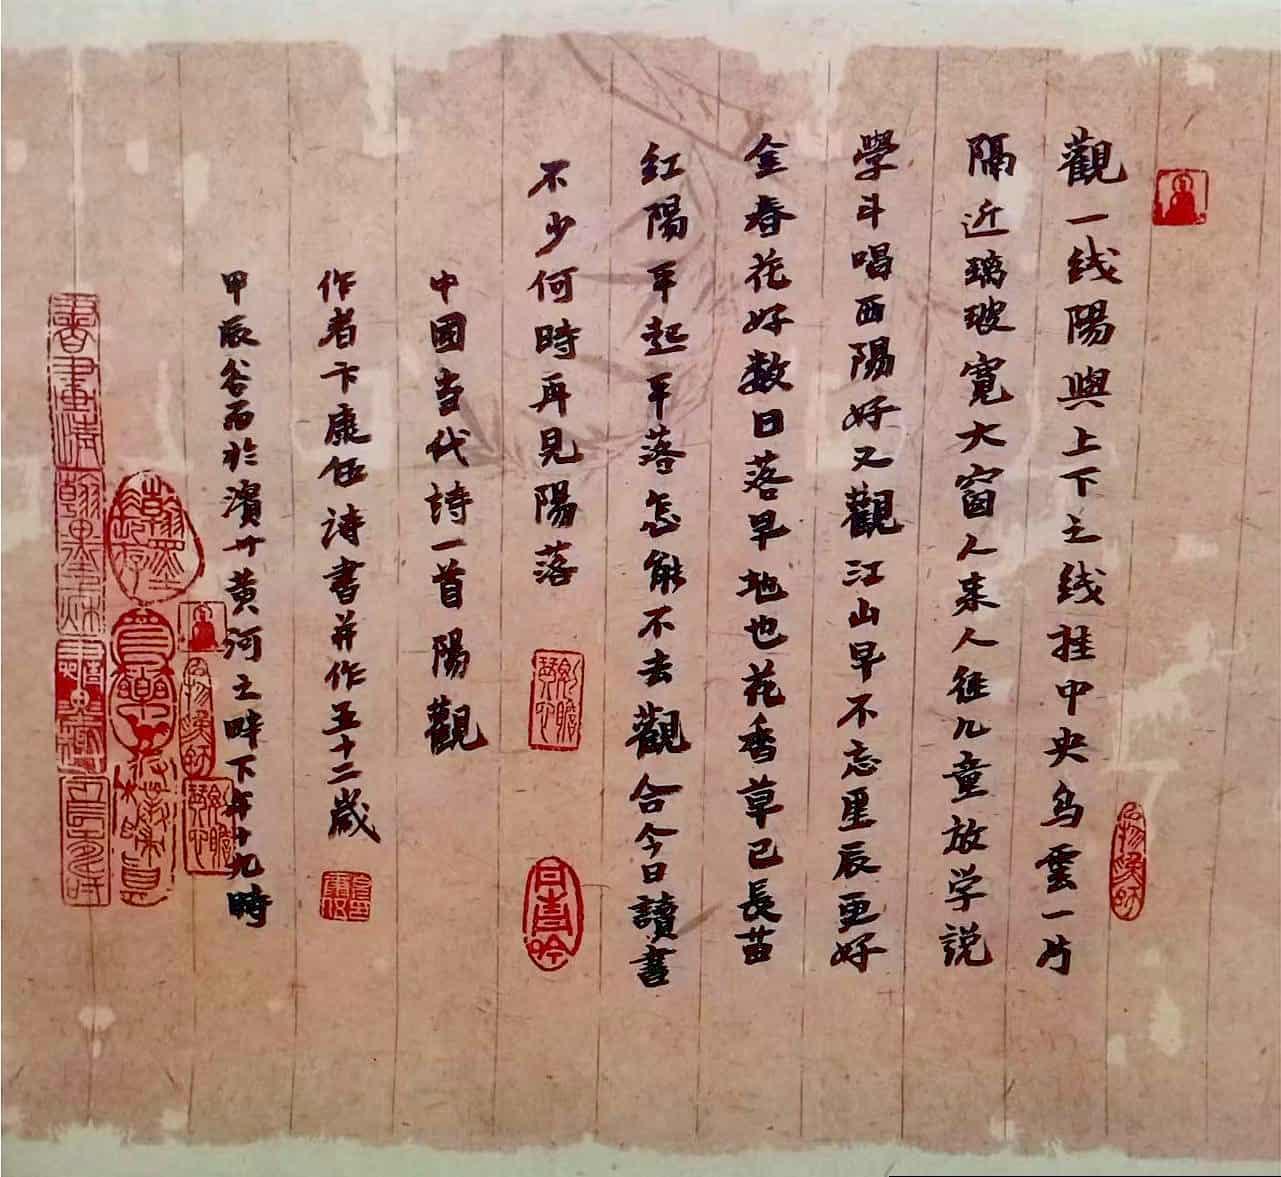 觀一线陽與上下之线挂中央乌雲一片
隔近璃玻寬大窗人来人往儿童放学説
學斗唱西陽好又觀江山早不忘星辰更好
金春花好数日落早地也花香草已長苗
红陽年起年落怎能不去觀合今日讀書
不少何時再見陽落
中國当代詩一首陽觀
作者卞康伍詩書并作五十二歲
甲辰谷雨於濱州黄河之畔下午十九時
日書吟